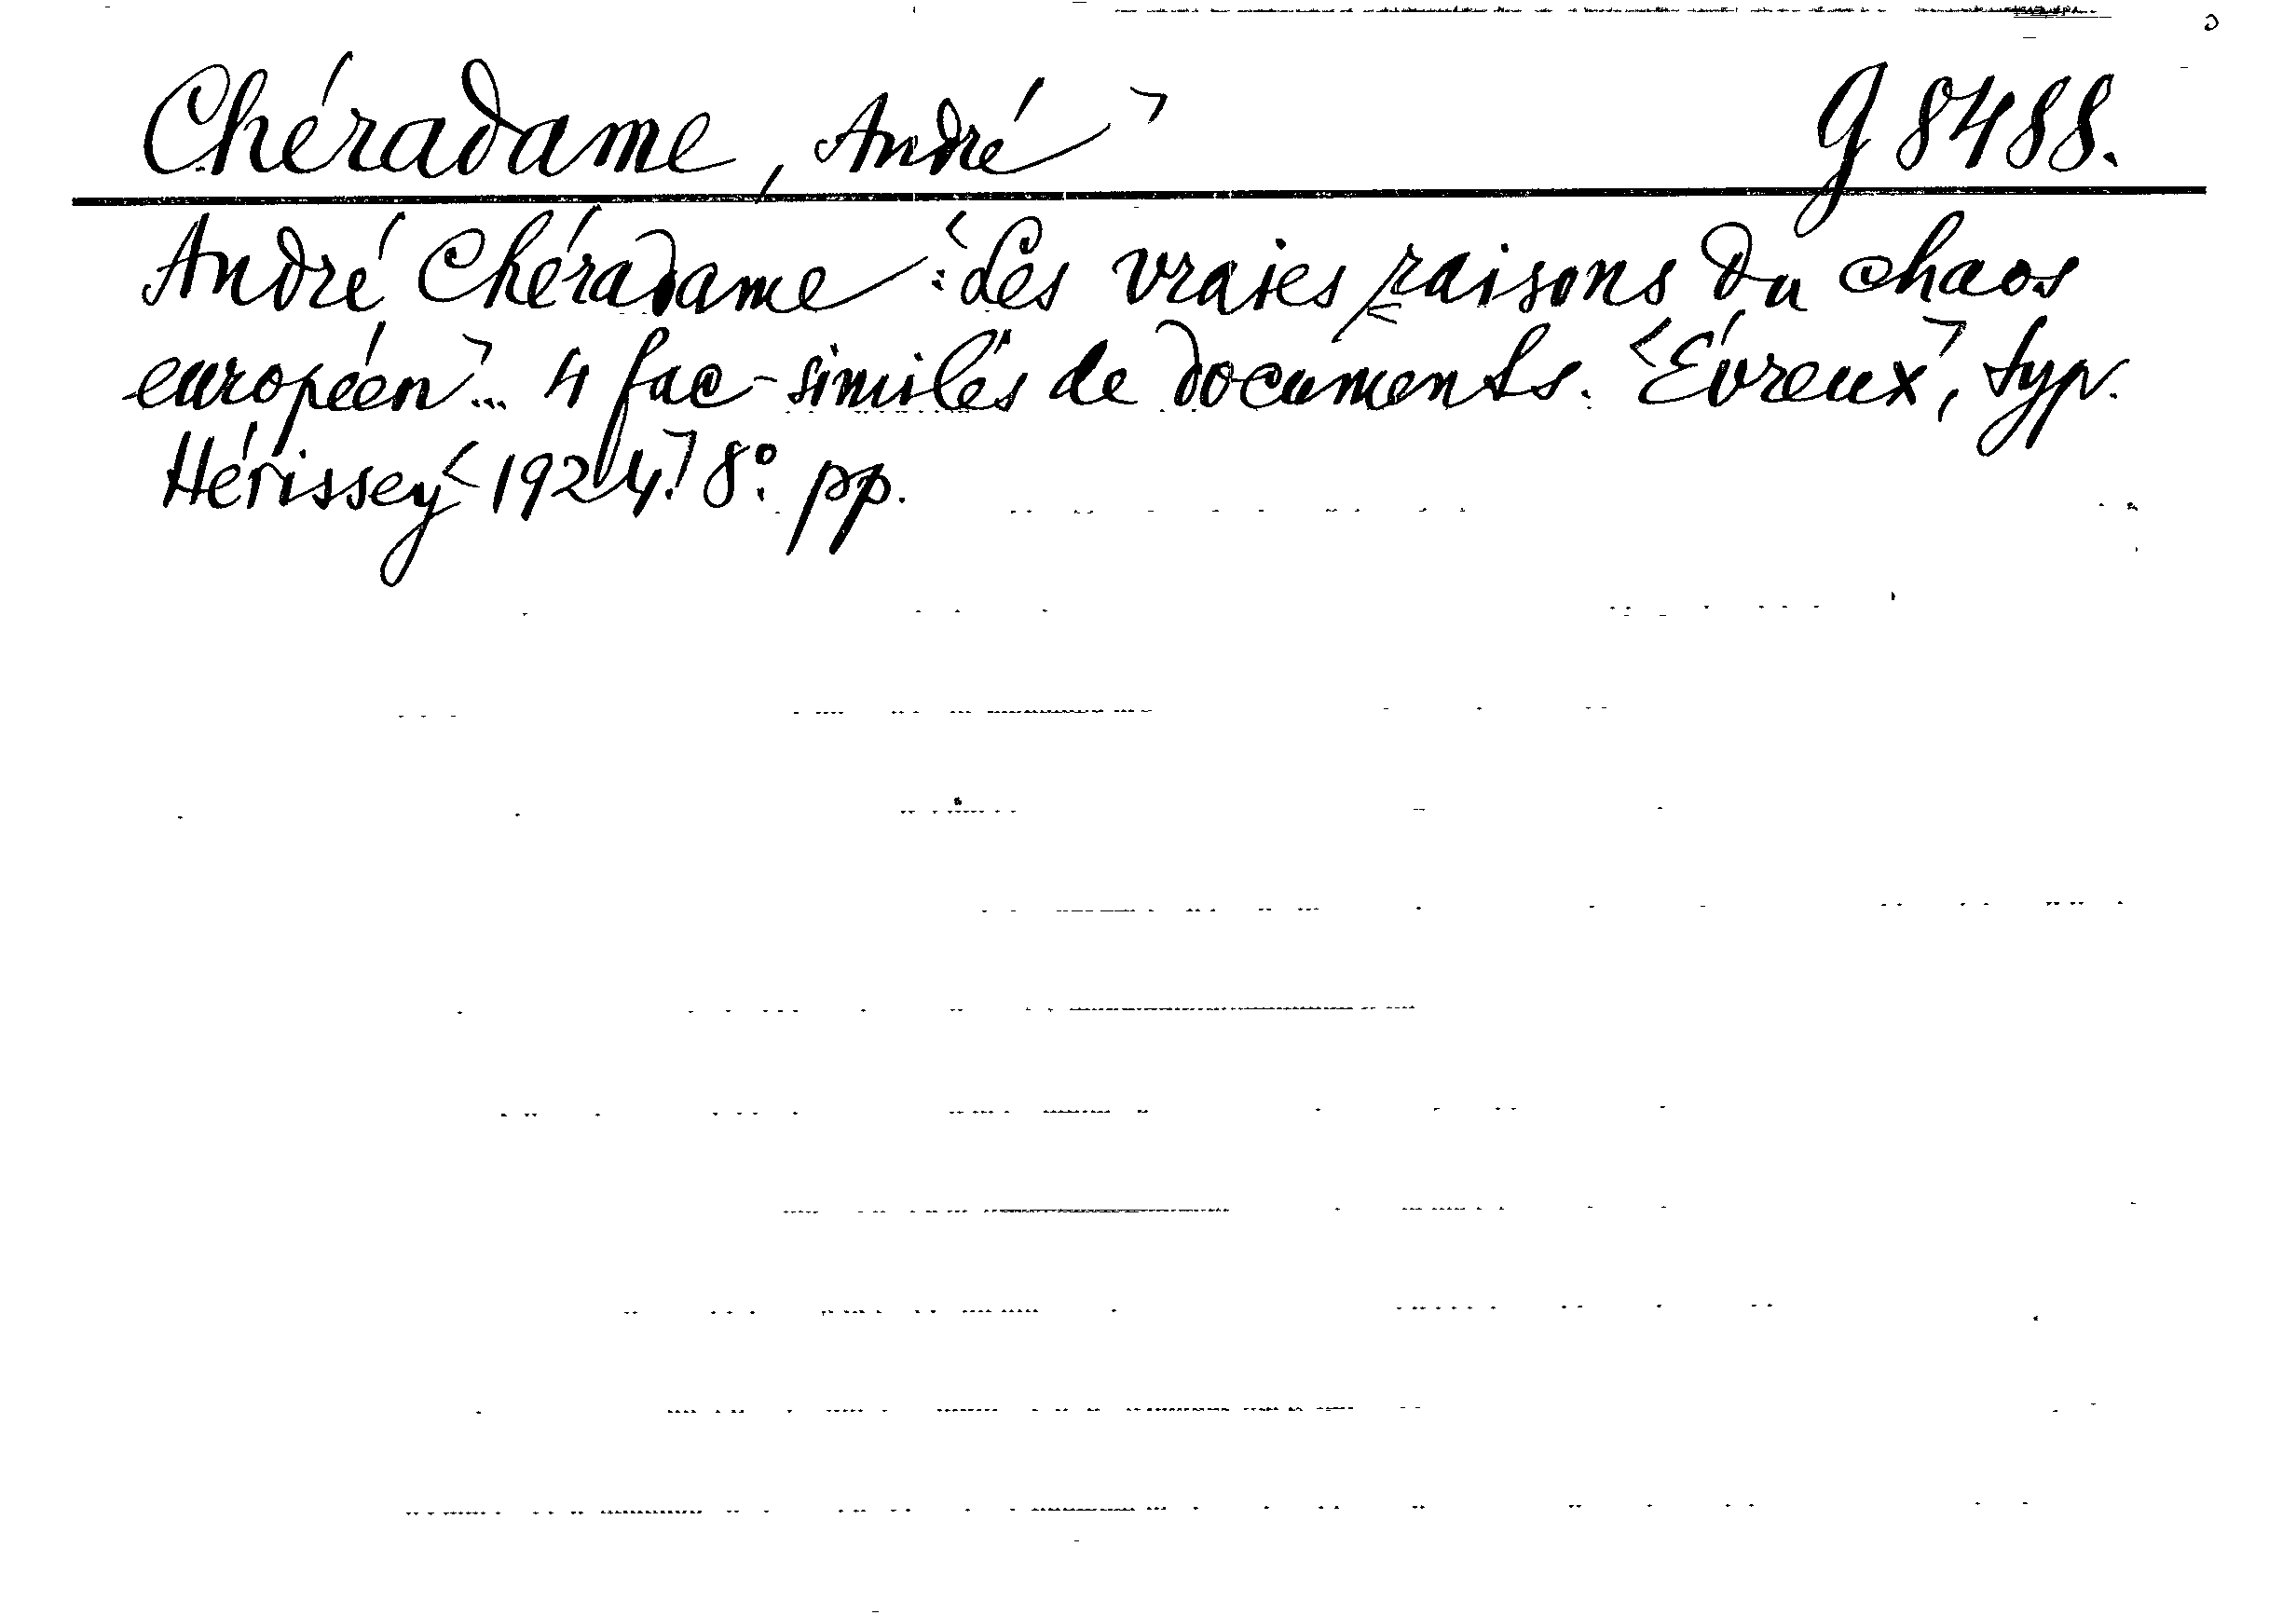 Chéradame, André G 8488.
André Chéradame: Les vraies raisons du chaos
européen... 4 fac-similés de documents. Évreux, typ.
Hérissey 1924. 8° pp.